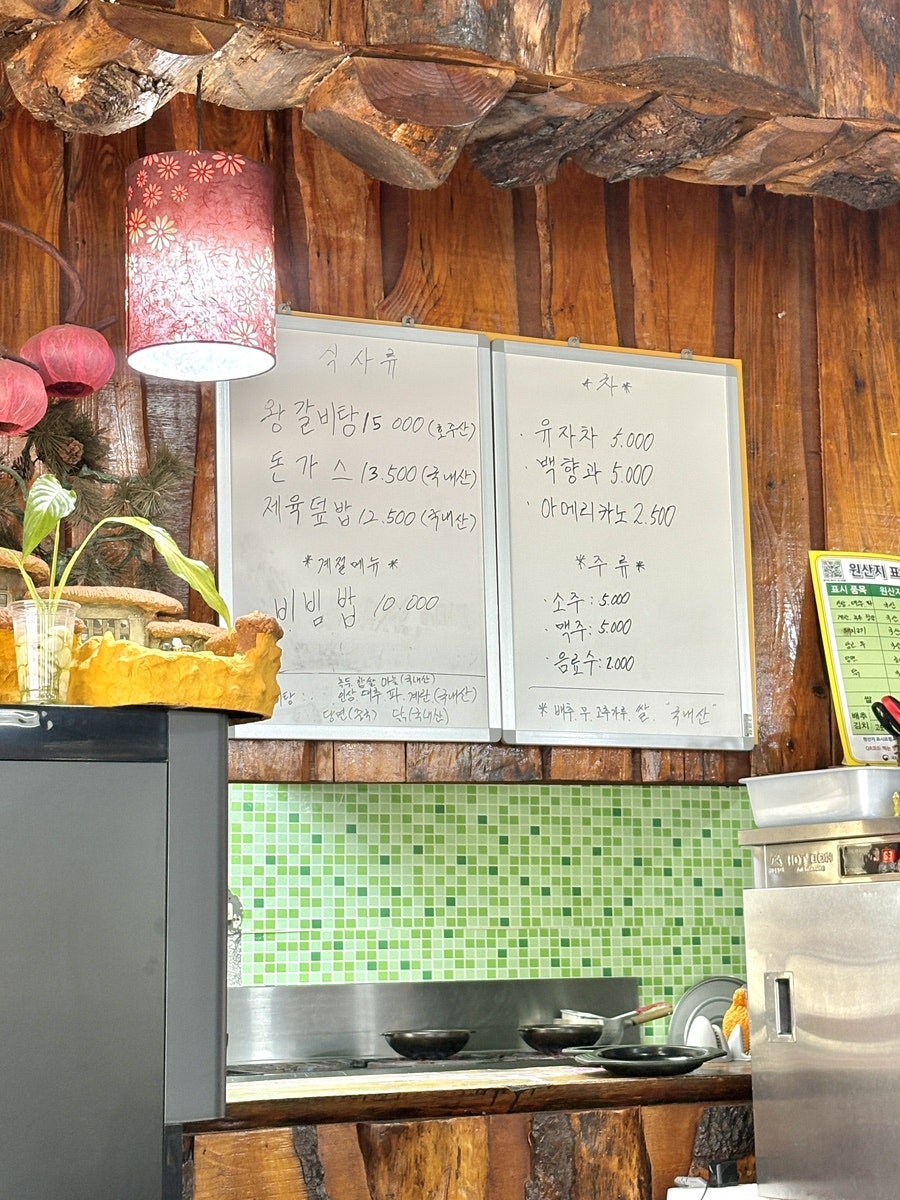 식사류
왕갈비탕 15000 (호주산)
돈가스 13.500 (국내산)
제육덮밥 12.500 (국내산)
*계절메뉴*
비빔밥 10.000
녹두 찹쌀 마늘 (국내산)
탕: 인삼 대추 파. 계란 (국내산)
당면 (중국) 닭 (국내산)
*차*
· 유자차 5.000
· 백향과 5.000
· 아메리카노 2.500
*주류*
· 소주: 5.000
· 맥주: 5.000
· 음료수: 2.000
* 배추. 무. 고추가루. 쌀. "국내산"
원산지 표
표시 품목 원산지
쌀
배추
김치
HOTEEN